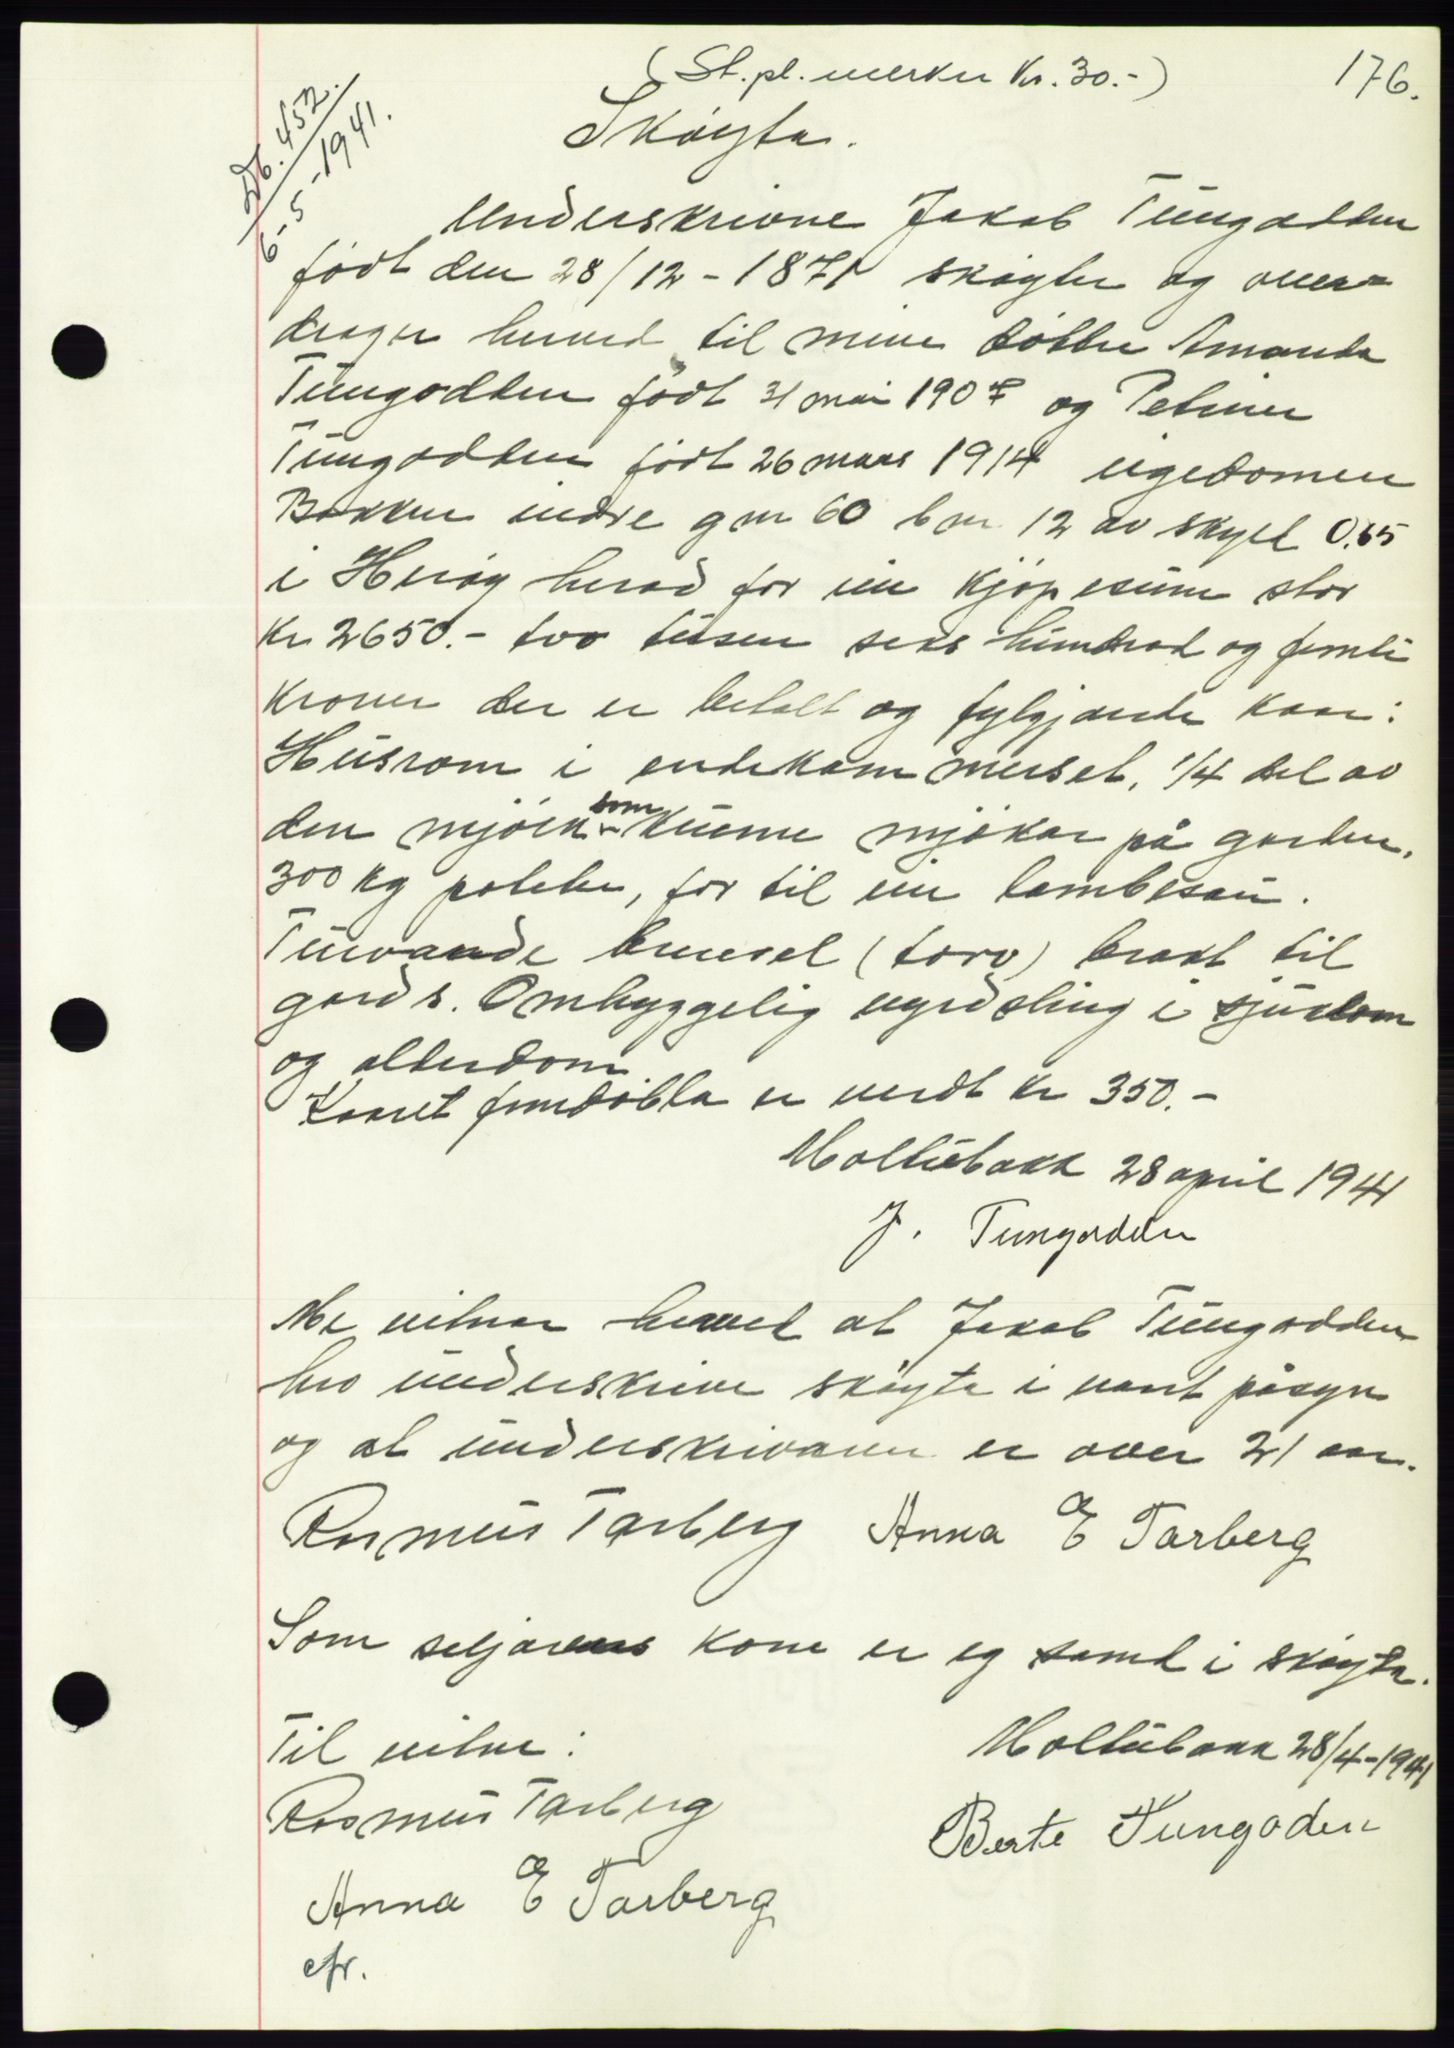 (St.pl. merker Kr. 30.-)
176.
Db. 452.
6-5-1941.
Skøyte.
Underskrivne Jakob Tungodden
født den 28/12-1871 skøyter og over-
drager herved til mine døttre Amanda
Tungodden født 31 mai 1907 og Petrine
Tungodden født 26 mars 1914 eigedomen
Bakken indre gnr 60 bnr 12 av skyld 0.65
i Herøy herad for ein kjøpesum stor
Kr 2650.- tvo tusen seks hundrad og femti
kroner der er betalt og fylgjande kaar:
Husrom i endekammerset, 1/4 del av
den mjølk som kuene mjøkar på garden.
300 kg poteter, for til ein lambsau.
Turvande brensel (torv) brakt til
gards. Omhyggelig røgdsling i sjukdom
og alderdom.
Kaaret femdobla er verdt kr 350.-
Moltubakk 28 april 1941
J. Tungodden
Me vitnar herved at Jakob Tungodden
hev underskrive skøyte i vaart påsyn
og at underskrivaren er over 21 aar.
Rasmus Tarberg Anna E Tarberg
Som seljarens kone er eg samd i skøyta.
Til vitne:
Moltubakk 28/4-1941
Rasmus Tarberg
Berte Tungoden
Anna E Tarberg